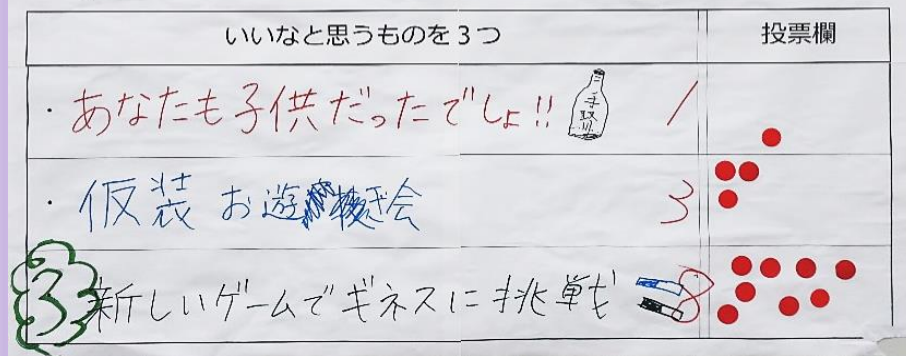 いいなと思うものを3つ 投票欄
・あなたも子供だったでしょ!! 手取川 1
・仮装 お遊ぎ会 3
③ 新しいゲームでギネスに挑戦 8